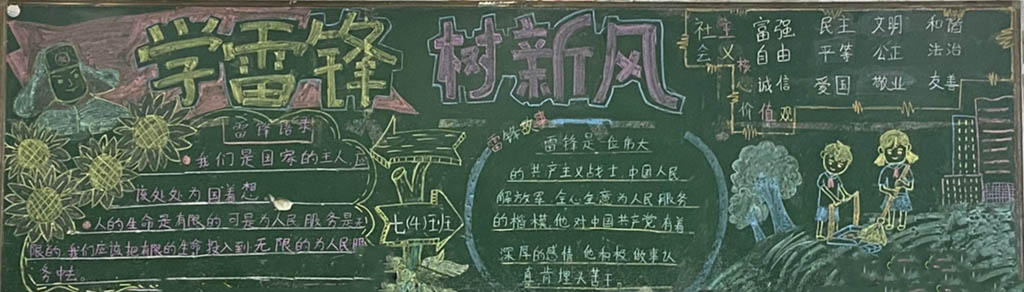 学雷锋 树新风
雷锋语录
我们是国家的主人
该处处为国着想
人的生命是有限的可是为人民服务是无
限的,我们应该把有限的生命投入到无限的为人民服
务中去。
七(4)班
雷锋故事
雷锋是一位伟大
的共产主义战士,中国人民
解放军,全心全意为人民服务
的楷模,他对中国共产党有着
深厚的感情,他积极做事认
真肯埋头苦干。
社会主义核心价值观
富强 民主 文明 和谐
自由 平等 公正 法治
诚信 爱国 敬业 友善